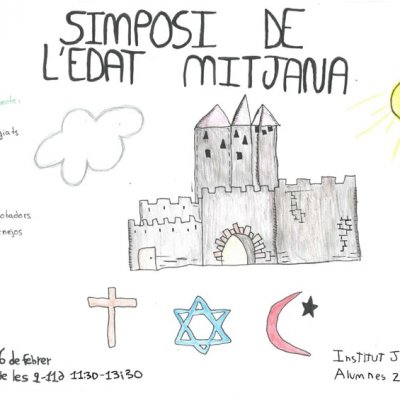 SIMPOSI DE
L'EDAT MITJANA
giats
nejos
6 de febrer
de les 9-11 11:30-13:30
INSTITUT J
Alumnes 2